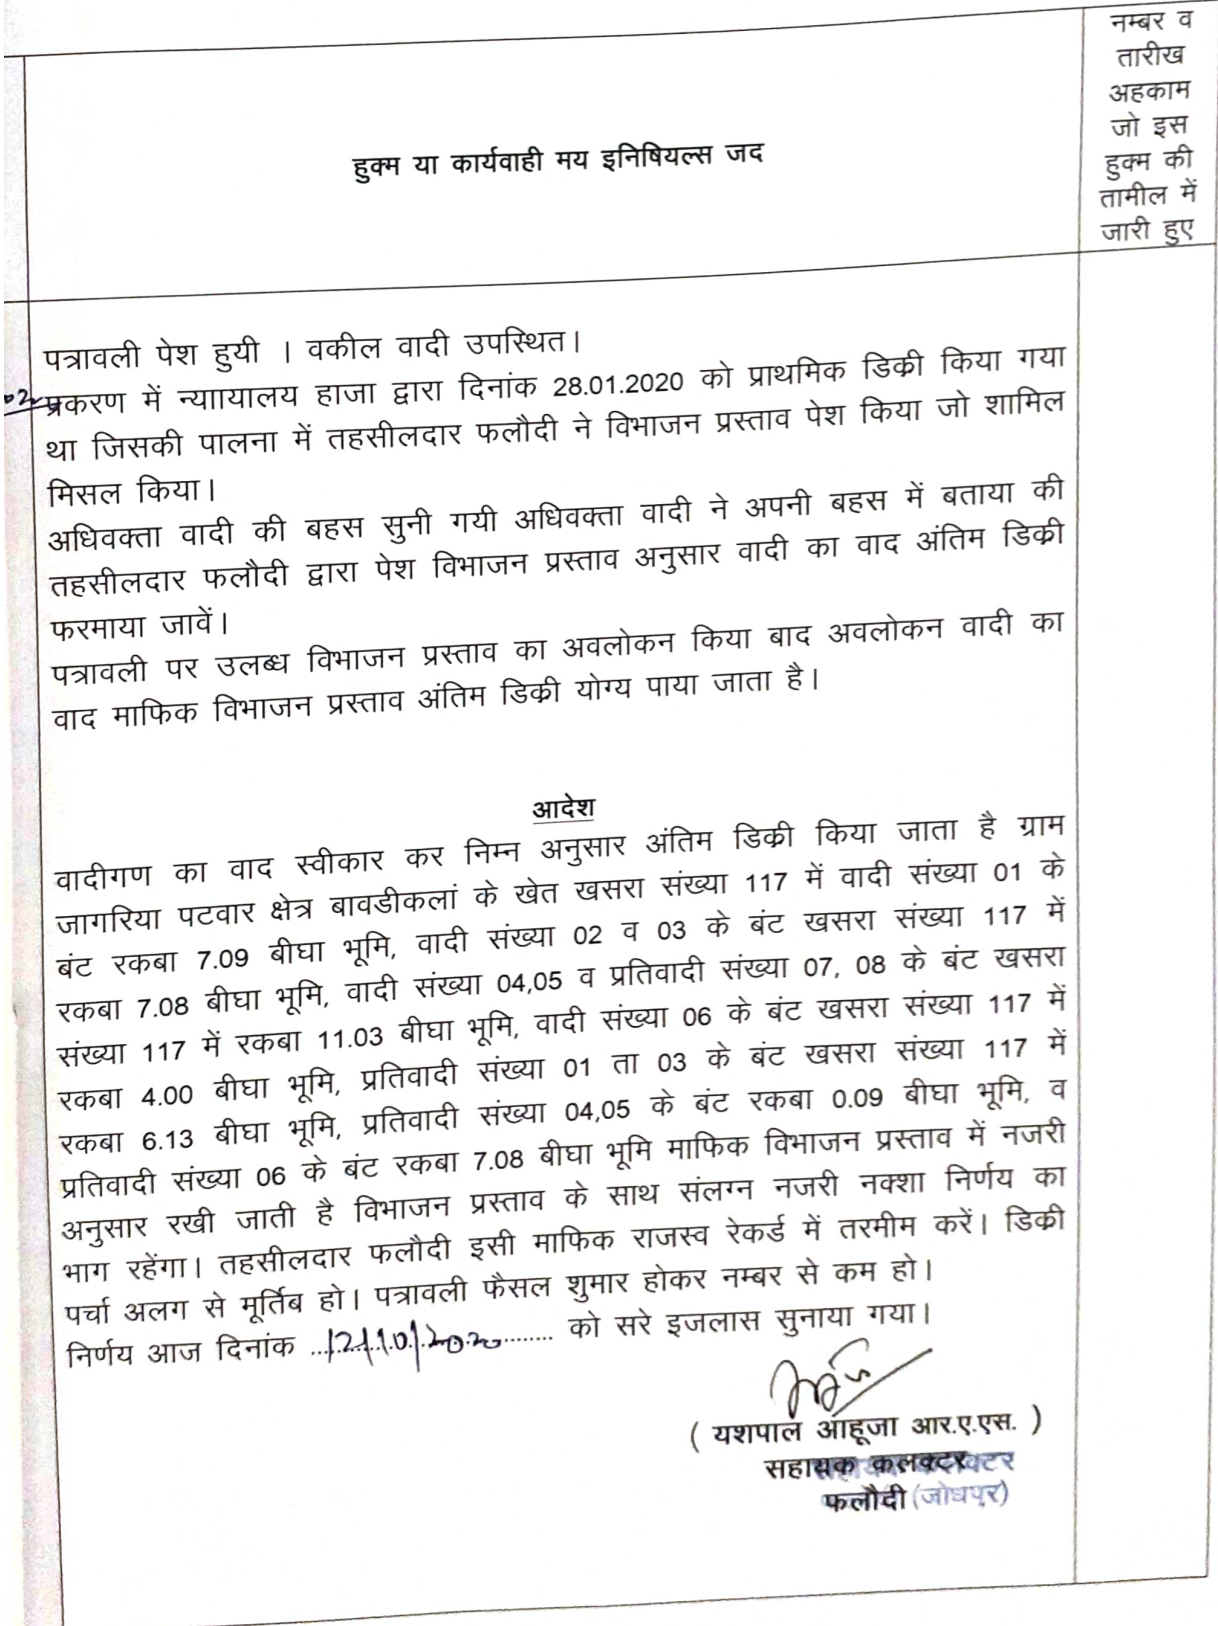 नम्बर व
तारीख
अहकाम
जो इस
हुक्म की
तामील में
जारी हुए
हुक्म या कार्यवाही मय इनिषियल्स जद
पत्रावली पेश हुयी । वकील वादी उपस्थित।
प्रकरण में न्याायालय हाजा द्वारा दिनांक 28.01.2020 को प्राथमिक डिक्री किया गया
था जिसकी पालना में तहसीलदार फलौदी ने विभाजन प्रस्ताव पेश किया जो शामिल
मिसल किया।
अधिवक्ता वादी की बहस सुनी गयी अधिवक्ता वादी ने अपनी बहस में बताया की
तहसीलदार फलौदी द्वारा पेश विभाजन प्रस्ताव अनुसार वादी का वाद अंतिम डिक्री
फरमाया जावें।
पत्रावली पर उलब्ध विभाजन प्रस्ताव का अवलोकन किया बाद अवलोकन वादी का
वाद माफिक विभाजन प्रस्ताव अंतिम डिक्री योग्य पाया जाता है।
आदेश
वादीगण का वाद स्वीकार कर निम्न अनुसार अंतिम डिक्री किया जाता है ग्राम
जागरिया पटवार क्षेत्र बावडीकलां के खेत खसरा संख्या 117 में वादी संख्या 01 के
बंट रकबा 7.09 बीघा भूमि, वादी संख्या 02 व 03 के बंट खसरा संख्या 117 में
रकबा 7.08 बीघा भूमि, वादी संख्या 04,05 व प्रतिवादी संख्या 07, 08 के बंट खसरा
संख्या 117 में रकबा 11.03 बीघा भूमि, वादी संख्या 06 के बंट खसरा संख्या 117 में
रकबा 4.00 बीघा भूमि, प्रतिवादी संख्या 01 ता 03 के बंट खसरा संख्या 117 में
रकबा 6.13 बीघा भूमि, प्रतिवादी संख्या 04,05 के बंट रकबा 0.09 बीघा भूमि, व
प्रतिवादी संख्या 06 के बंट रकबा 7.08 बीघा भूमि माफिक विभाजन प्रस्ताव में नजरी
अनुसार रखी जाती है विभाजन प्रस्ताव के साथ संलग्न नजरी नक्शा निर्णय का
भाग रहेंगा। तहसीलदार फलौदी इसी माफिक राजस्व रेकर्ड में तरमीम करें। डिक्री
पर्चा अलग से मूर्तिब हो। पत्रावली फैसल शुमार होकर नम्बर से कम हो।
निर्णय आज दिनांक ...12/10/2020....... को सरे इजलास सुनाया गया।
( यशपाल आहूजा आर.ए.एस. )
सहायक कलक्टर
फलौदी (जोधपुर)